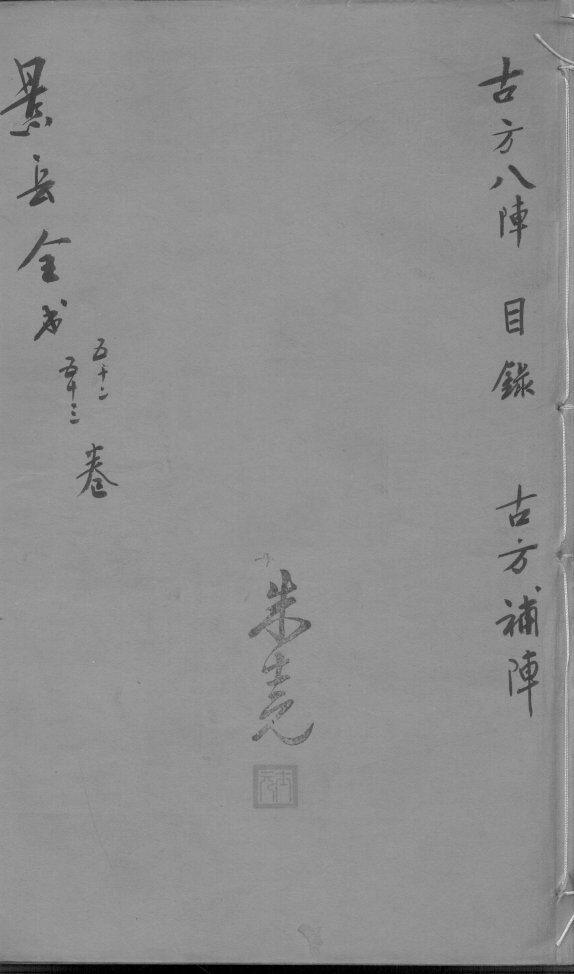 古方八陣 目錄 古方補陣
朱
景岳全书
五十二
五十三
卷